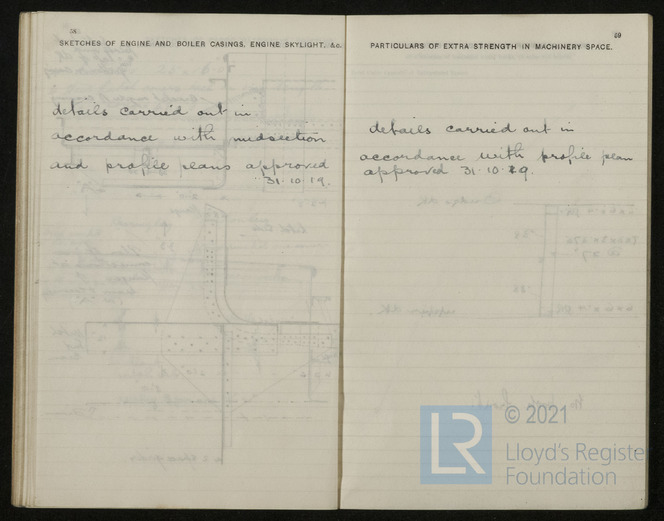 58
SKETCHES OF ENGINE AND BOILER CASINGS, ENGINE SKYLIGHT, &c.
details carried out in
accordance with midsection
and profile plans approved
31.10.19.
59
PARTICULARS OF EXTRA STRENGTH IN MACHINERY SPACE.
details carried out in
accordance with profile plan
approved 31.10.19.
LR
© 2021
Lloyd's Register
Foundation